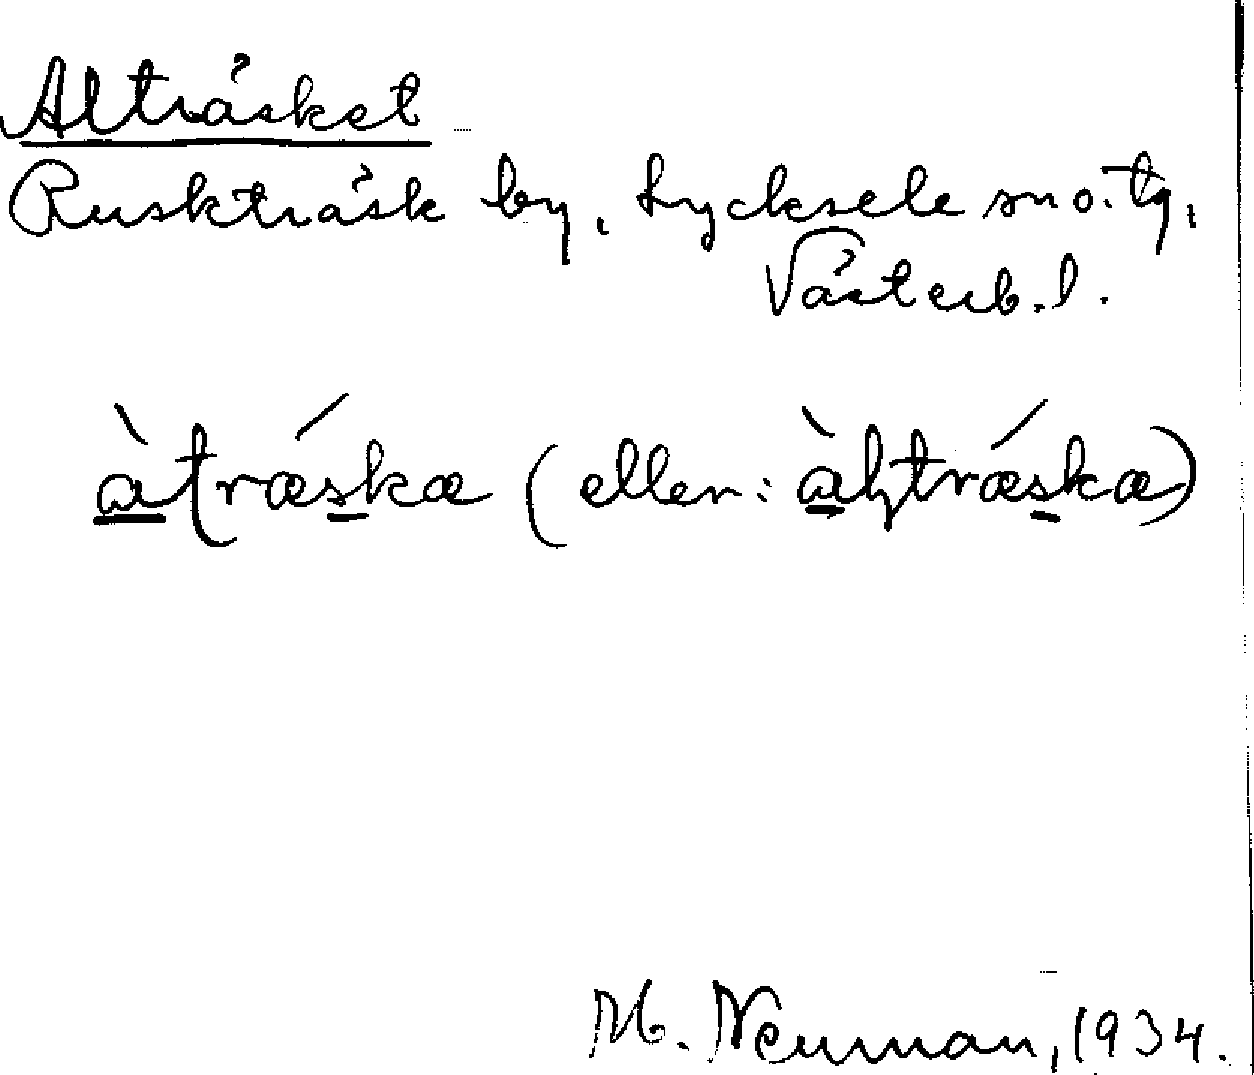 Alträsket
Ruskträsk by, Lycksele sn o. tg,
Västerb. l.
àtræ´ska (eller: àltræ´ska)
M. Neuman, 1934.